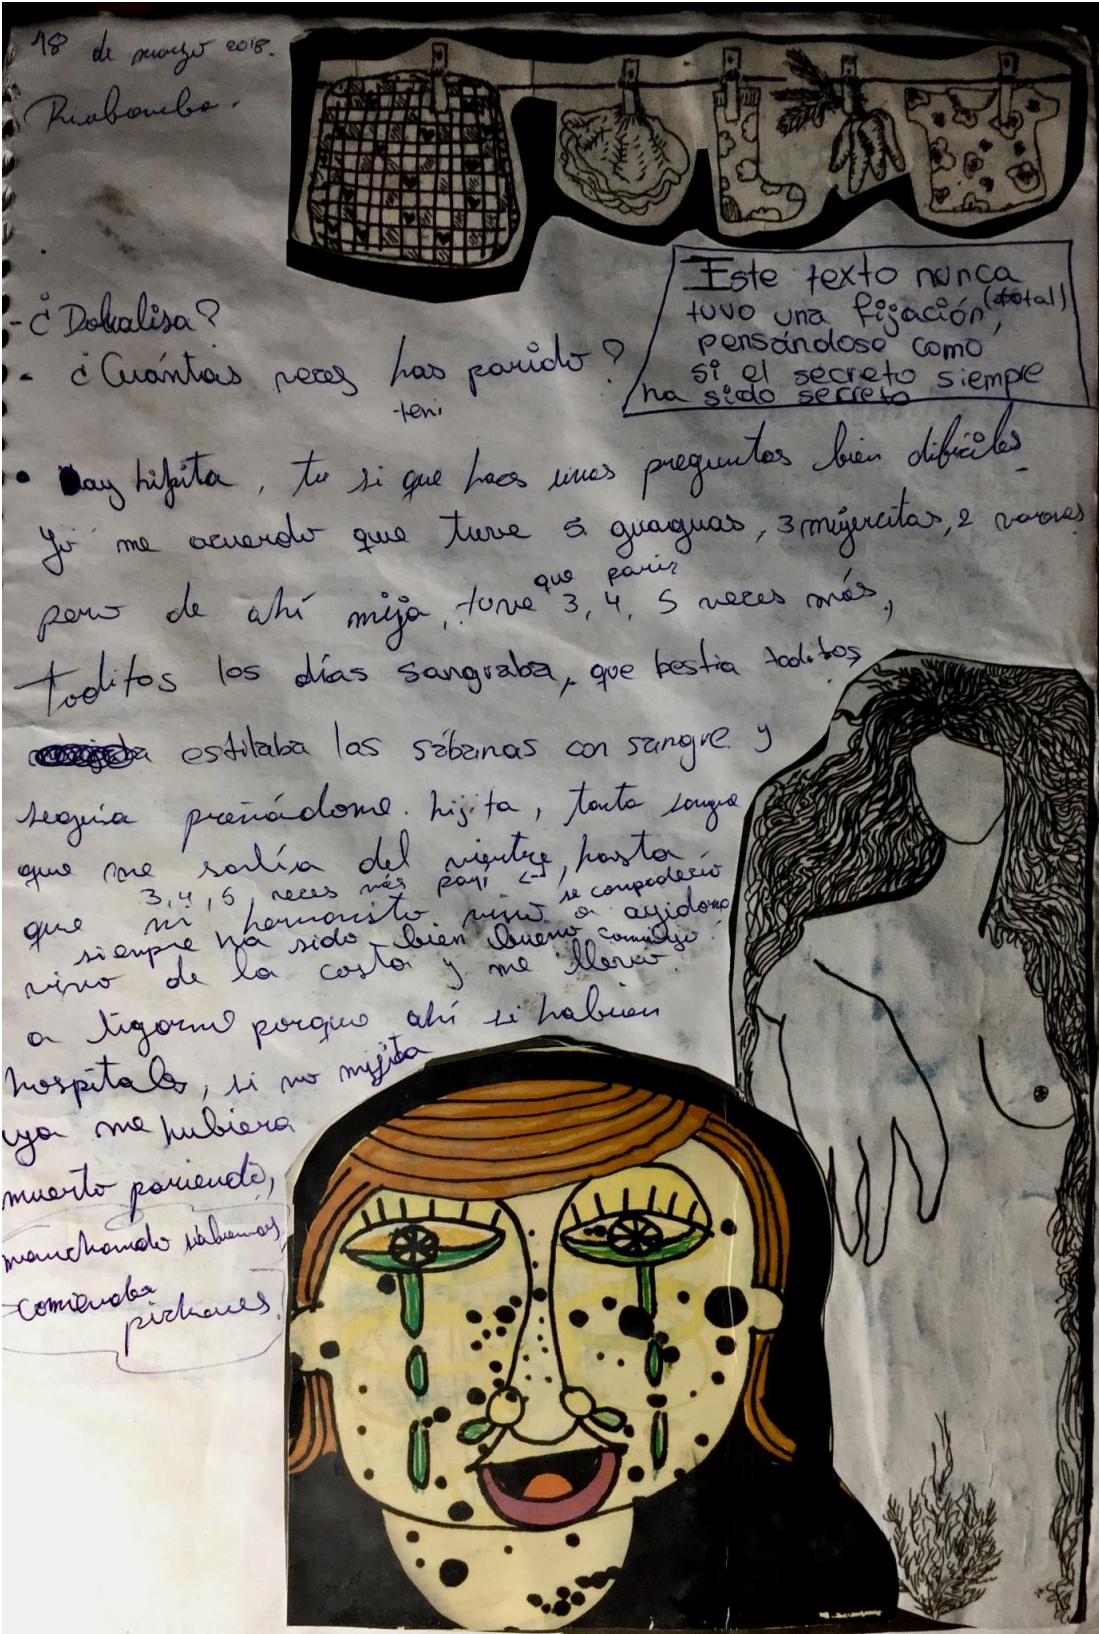 18 de marzo 2018.
Riobamba.
Este texto nunca
tuvo una fijación, (total)
pensándose como
si el secreto siempre
ha sido secreto
- ¿Dokalisa?
- ¿Cuántas veces has parido?
teni
• ay hijita, tu si que haces unas preguntas bien difíciles
Yo me acuerdo que tuve 5 guaguas, 3 mujercitas, 2 varones
que parir
pero de ahí mija, tuve 3, 4, 5 veces más,
toditos los días sangraba, que bestia toditos
estilaba las sábanas con sangre y
seguía preñándome. hijita, tanta sangre
que me salía del vientre, hasta
3, 4, 5 veces más parí <- se compadeció
que mi hermanito vino a ayudarme
siempre ha sido bien bueno conmigo.
vino de la costa y me llevó
a ligarme porque ahí si habían
hospitales, si no mijita
ya me hubiera
muerto pariendo,
manchando sábanas,
comiendo